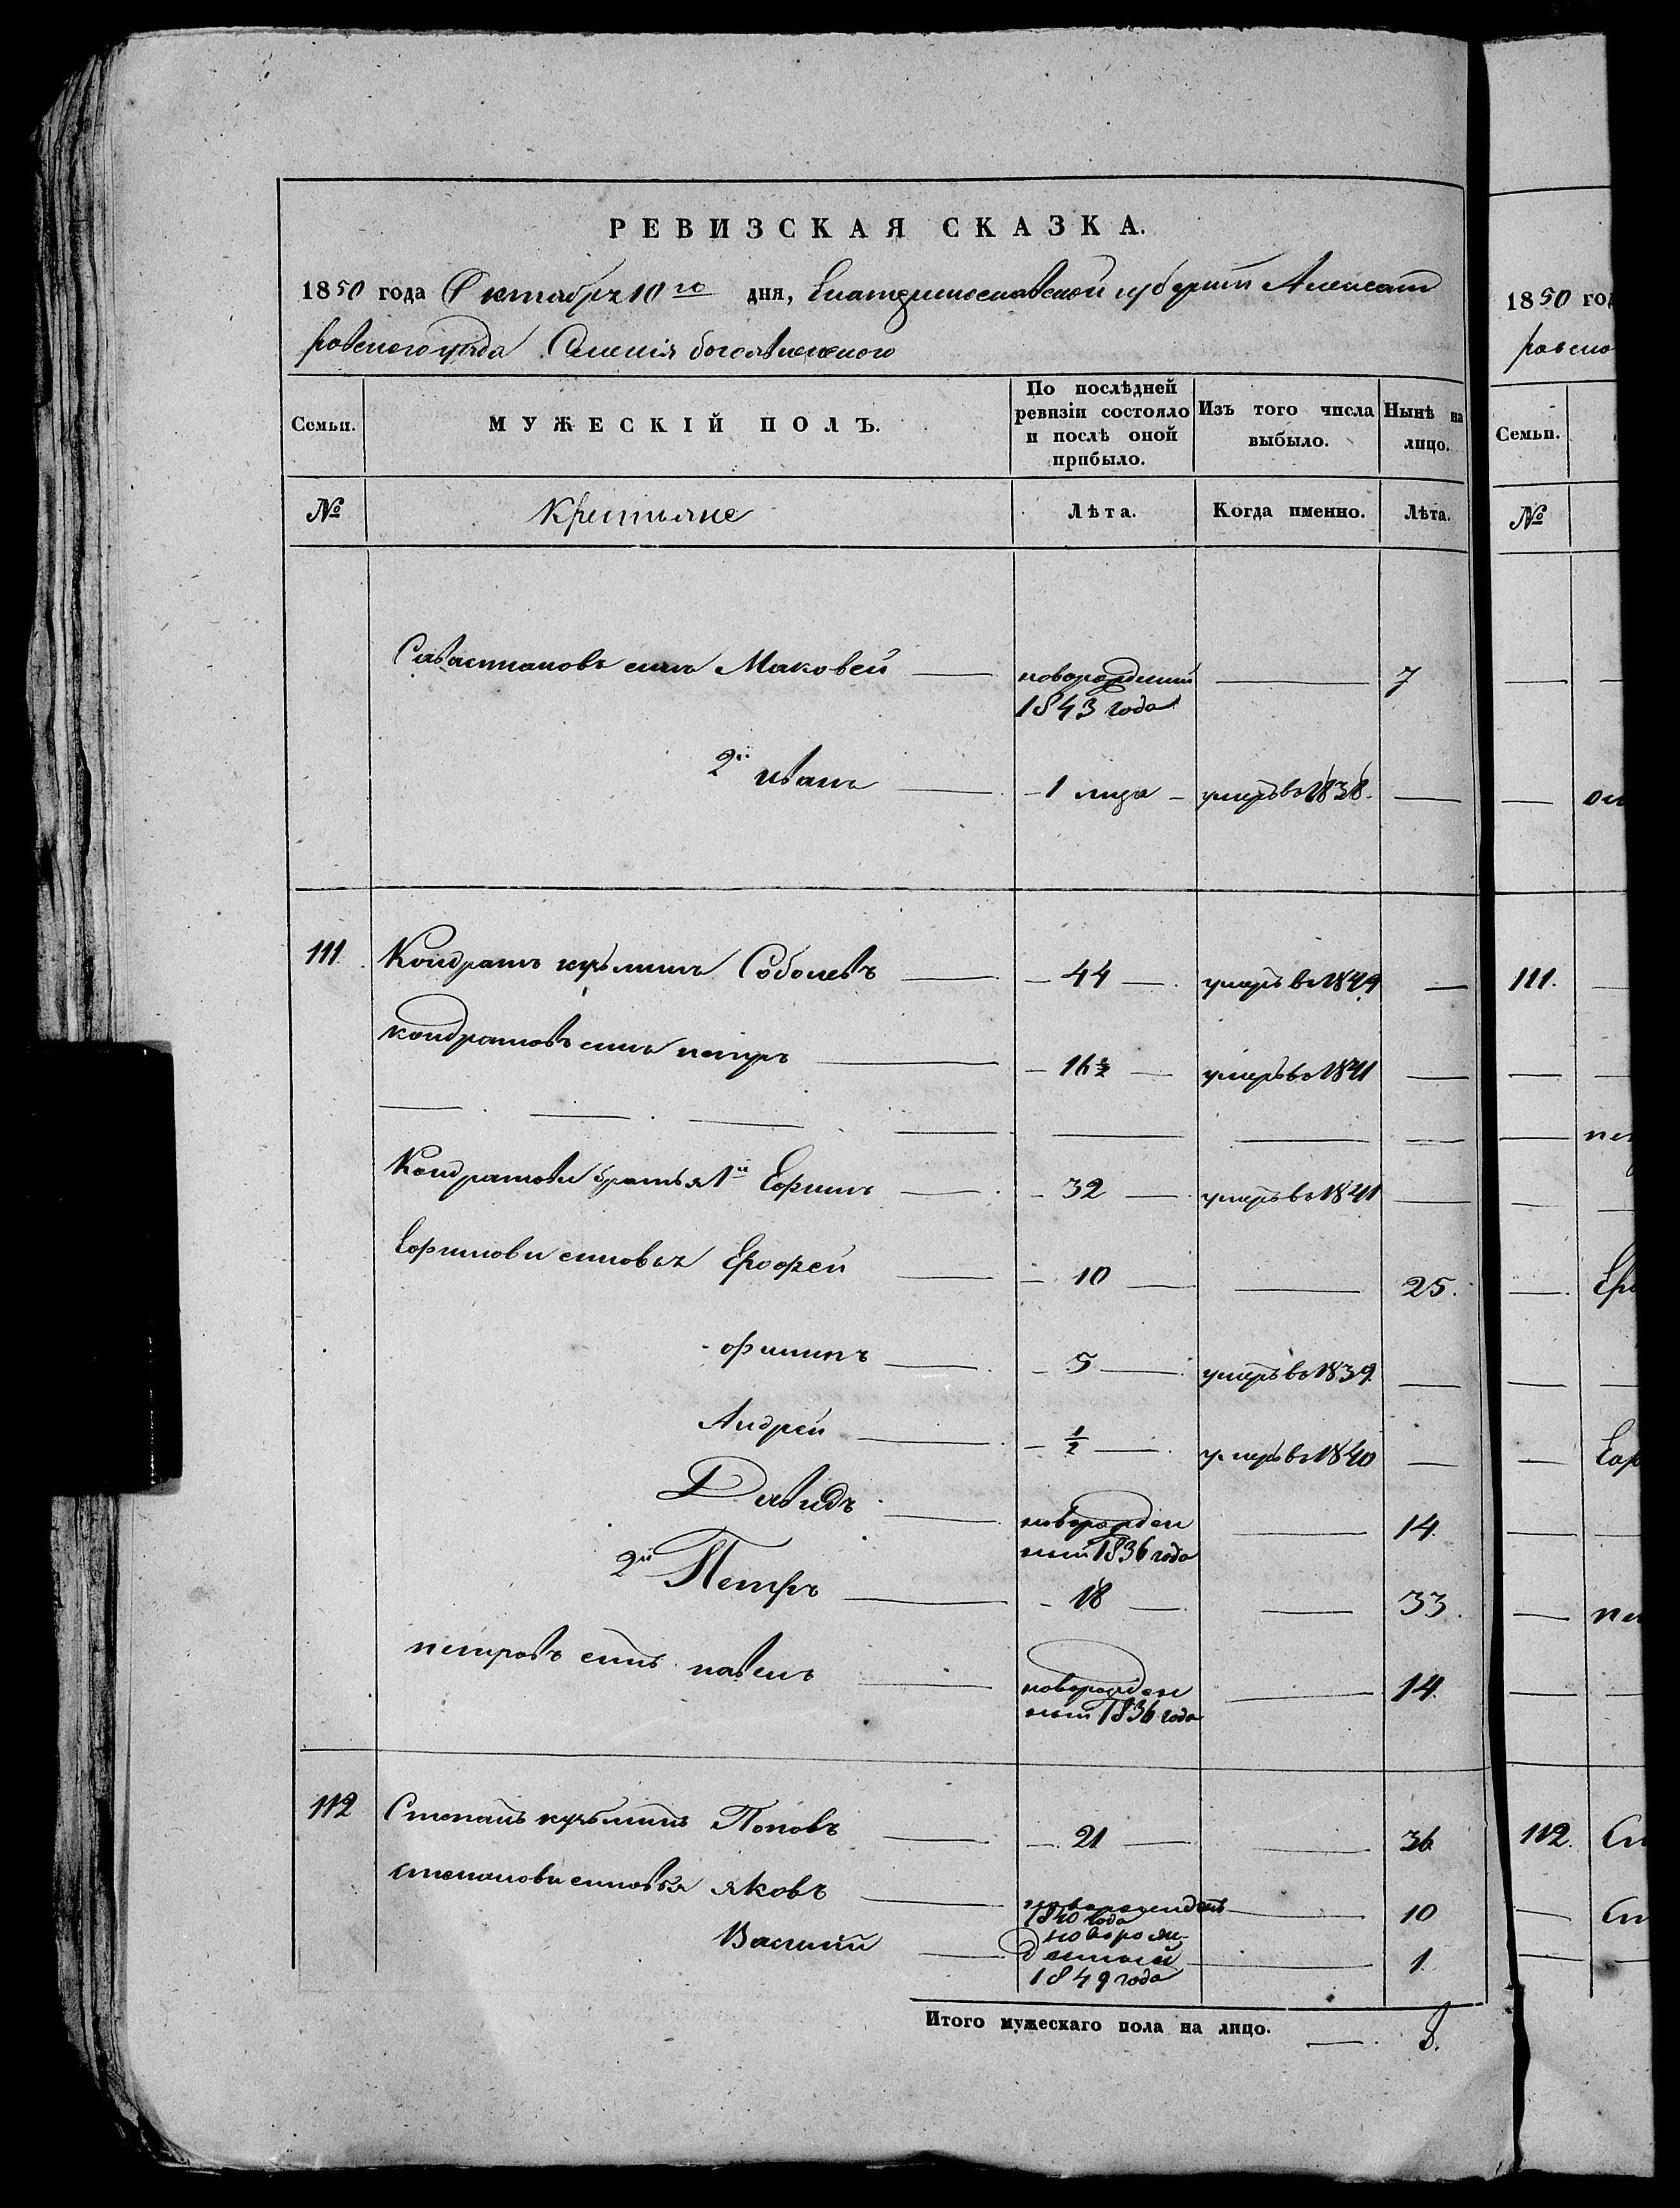 РЕВИЗСКАЯ СКАЗКА.
1850 года Октября 10го дня, Екатеринославской губернии Александ
ровского уезда Селения богоявленского
Семьи. МУЖЕСКІЙ ПОЛЪ. По послѣдней ревизіи состояло и послѣ оной прибыло. Изъ того числа выбыло. Нынѣ на лицо.
№ Крестьяне Лѣта. Когда именно. Лѣта.
Савастиановъ сынъ Маковей новорожденный 7
1843 года
2й иванъ 1 лида умеръ во 1838
111 Кондратъ кузьминъ Соболевъ 44 умеръ во 1849
кондратовъ сынъ петръ 16½ умеръ во 1841
Кондратовы братья 1й Ефимъ 32 умеръ во 1841
Ефимовы сыновья Ерофей 10 25.
филипъ 5 умеръ во 1839
Андрей ½ умеръ во 1840
Давидъ новорожден 14.
ный 1836 года
2й Петръ 18 33.
петровъ сынъ павелъ новорожден 14.
ный 1836 года
112 Степанъ кузьминъ Поповъ 21 36
степановы сыновья яковъ новорожденъ 10
1840 года
Василий новорож
денный 1.
1849 года
Итого мужескаго пола на лицо. 8.
1850 год
ровско
Семьи.
№
111.
112. Ст